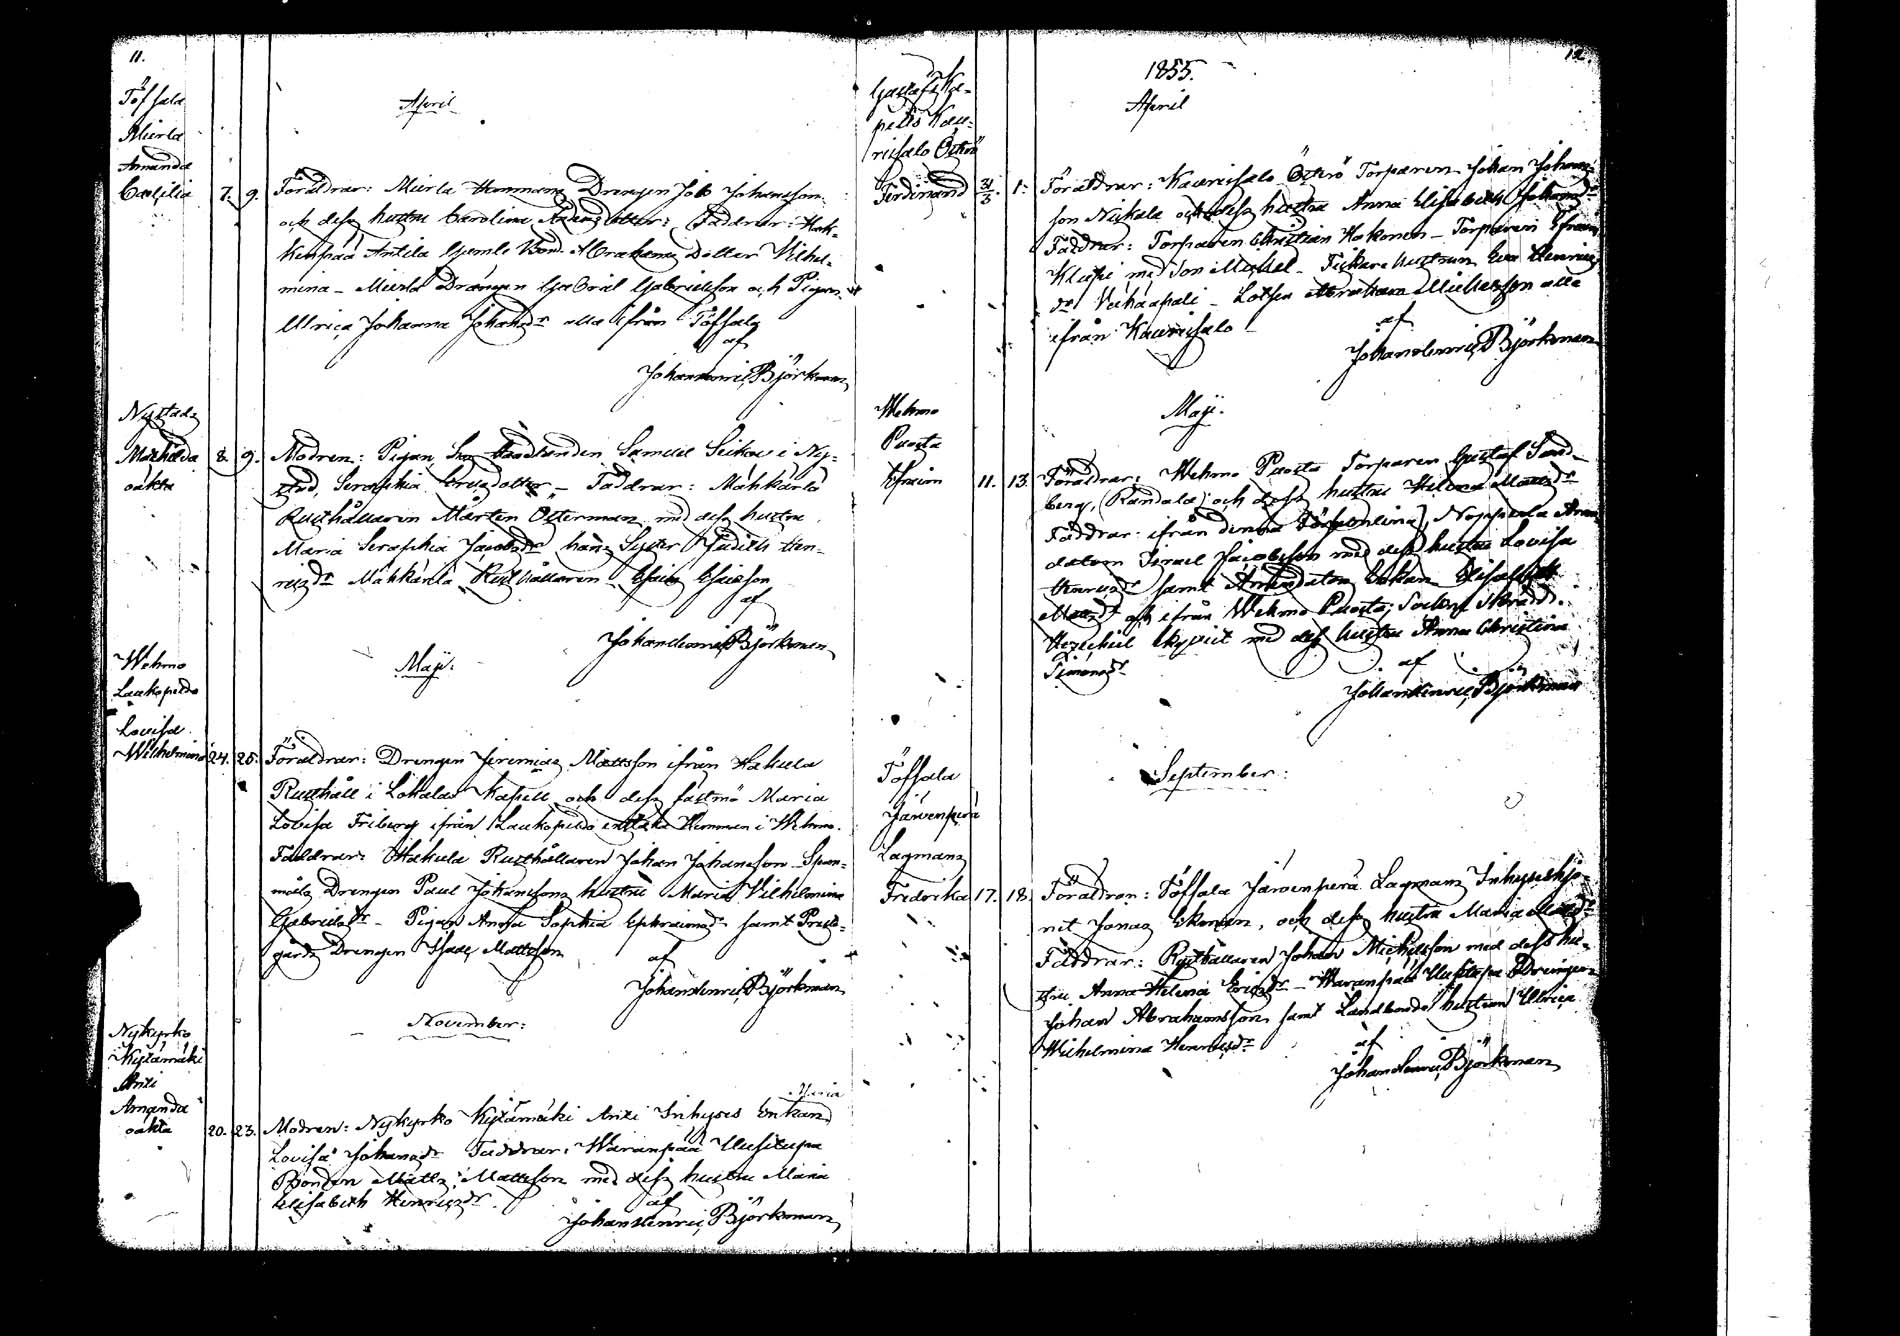 11.
April
Töfsala
Mierla
Amanda
Cecilia 7. 9. Föräldrar: Mierla Hemmans Drengen Job Johansson
och dess hustru Carolina dotter: Faddrar: Hak-
kenpää Antila Gamle Bond. Abrahams Dotter Vilhel-
mina - Mierla Drängen Gabriel Gabrielsson och Pigan
Ulrica Johanna Johansdr alla ifrån Töfsala
af
Johan Henric Björkman
Nystads
Mathilda
oäkta 8. 9. Modren: Pigan hos Samuel i Ny-
stad, Serafhia Ericsdotter - Faddrar: Mahkarla
Rusthållaren Mårten Österman med dess hustru
Maria Seraphia Jacobsdr hans Syster Judith Hen-
ricsdr Mahkarla Rusthållaren Esaias Esaiasson
af
Johan Henric Björkman
Maji:
Wehmo
Laukopeldo
Lovisa
Wilhelmina 24. 25. Föräldrar: Drengen Jeremias Mattsson ifrån Hakula
Rusthåll i Lokalax Kapell och dess fästmö Maria
Lovisa Friberg ifrån Laukopeldo Hemman i Wehmo.
Faddrar: Hakula Rusthållaren Johan Johansson - Span-
måls Drengen Paul Johanssons hustru Maria Vilhelmina
Gabrielsdr - Pigan Anna Sophia Ephraimsdr samt Prest-
gårds Drengen Isaac Mattsson
af
Johan Henric Björkman
November:
Nykyrko
Kytämäki
Anti
Amanda
oäkta 20. 23. Modren: Nykyrko Kytämäki Anti Inhyses Enkan Maria
Lovisa Johansdr Faddrar: Waranpää Uusitupa
Bonden Matts Mattsson med dess hustru Maria
Elisabeth Henricsdr.
af
Johan Henric Björkman
12.
1855.
April
Gustafs Ka-
pells Kau-
risalo Österö
Ferdinand 31/3. 1. Föräldrar: Kaurisalo Österö Torparen Johan Johans-
son Niskala och dess hustru Anna Elisabeth Johansdr
Faddrar: Torparen Christian Hakonen - Torparen Efraim
Klaspi med Son Michel - Fiskare hustrun Eva Henrics-
dr - Lotsen Abraham Michelsson alla
ifrån Kaurisalo
af
Johan Henric Björkman
Maji.
Wehmo
Puosta
Efraim 11. 13. Föräldrar: Wehmo Puosta Torparen Gustaf Sand-
berg, (Randala) och dess hustru Helena Mattsdr
Faddrar: ifrån denna Nopperla Aren-
datorn Israel Jacobsson med dess hustru Lovisa
Henricsdr samt Arendators Enkan Elisabeth
Mattsdr och ifrån Wehmo Puosta; Sockne Skrädd.
Hezechiel med dess hustru Anna Christina
Simonsdr
af
Johan Henric Björkman
September:
Töfsala
Järvenperä
Lagmans
Fredrika 17. 18. Föräldrar: Töfsala Järvenperä Lagmans Inhyseshjo-
net Jonas Ekman, och dess hustru Maria Mattsdr
Faddrar: Rusthållaren Johan Michelsson med dess hu-
stru Anna Helena Ericsdr - Waranpää Uusitupa Drengen
Johan Abrahamsson samt Landbonde hustrun Ulrica
Wilhelmina Henricsdr
af
Johan Henric Björkman